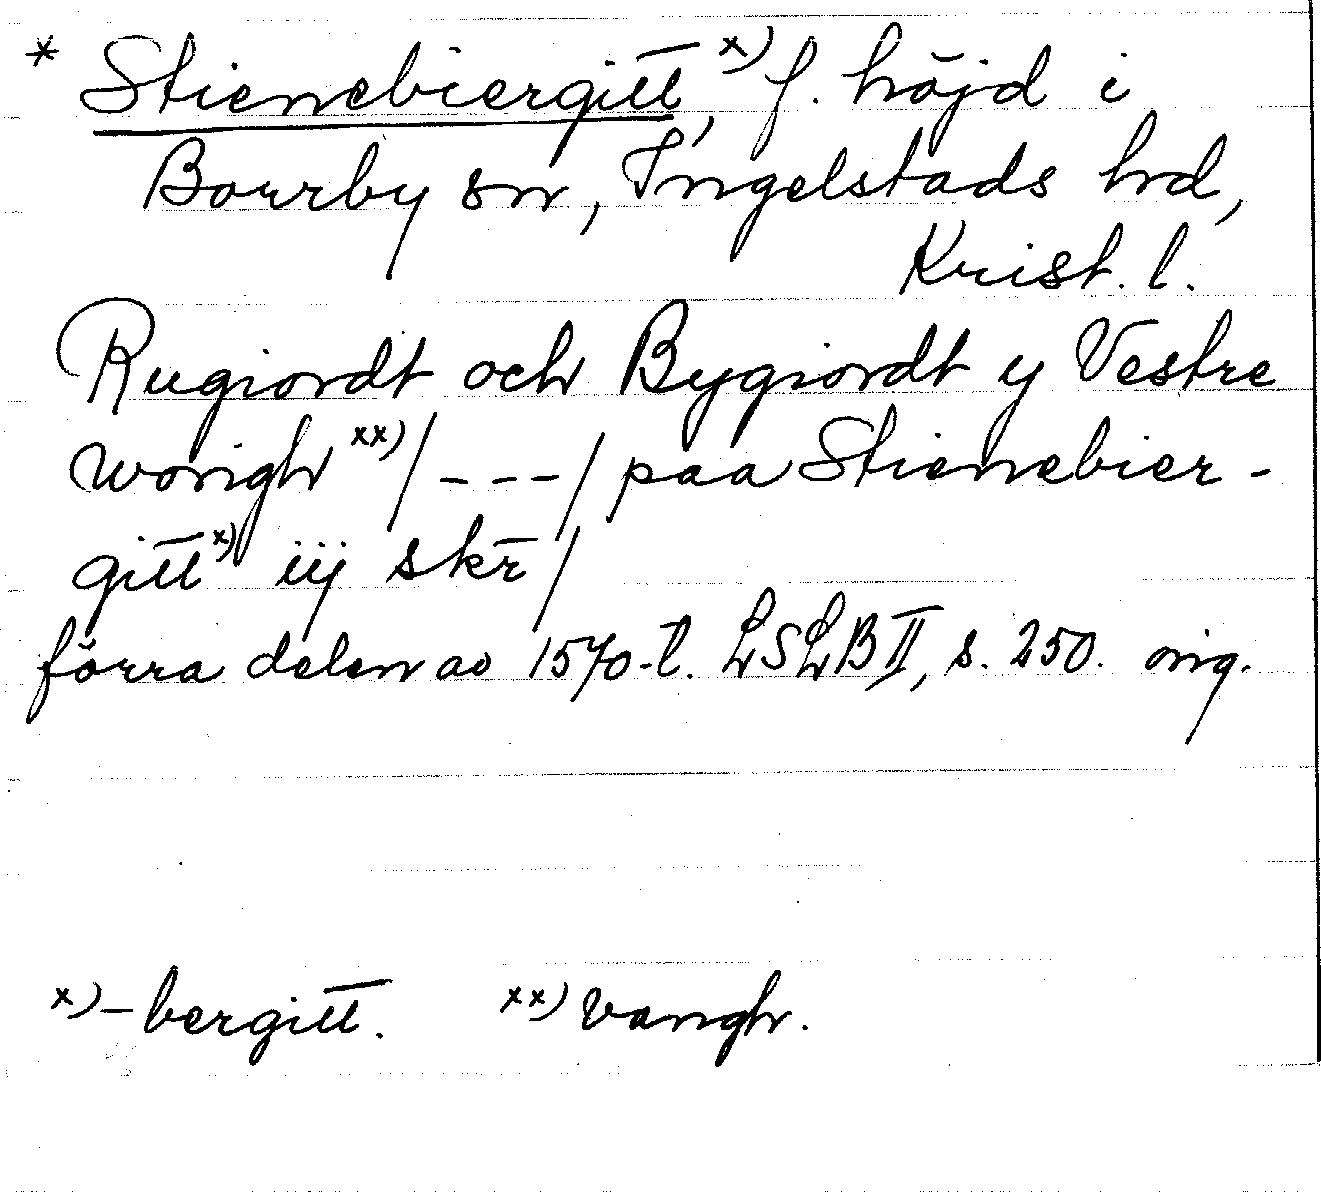 * Stienebiergitt x), f. höjd i
Borrby sn, Ingelstads hrd,
Krist. l.
Rugiordt och Bygiordt y Vestre
wongh xx) / - - - / paa Stienebier-
gitt x) iij skr̄ /
förra delen av 1570-t. LSLB II, s. 250. orig.
x) -bergitt. xx) vangh.